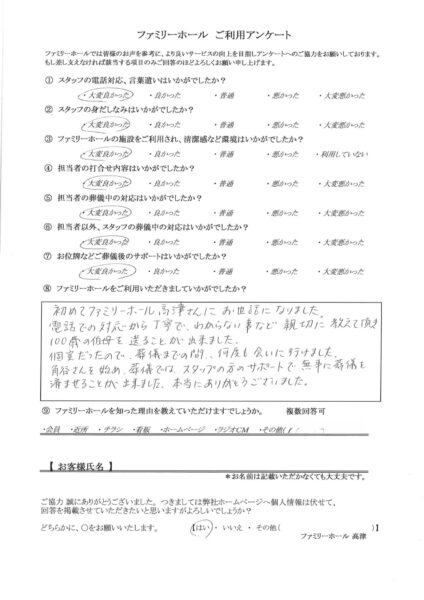 ファミリーホール ご利用アンケート
ファミリーホールでは皆様のお声を参考に、より良いサービスの向上を目指しアンケートへのご協力をお願いしております。
もし差し支えなければ該当する項目のみご回答のほどよろしくお願い申し上げます。
① スタッフの電話対応、言葉遣いはいかがでしたか？
・大変良かった ・良かった ・普通 ・悪かった ・大変悪かった
② スタッフの身だしなみはいかがでしたか？
・大変良かった ・良かった ・普通 ・悪かった ・大変悪かった
③ ファミリーホールの施設をご利用され、清潔感など環境はいかがでしたか？
・大変良かった ・良かった ・普通 ・悪かった ・利用していない
④ 担当者の打合せ内容はいかがでしたか？
・大変良かった ・良かった ・普通 ・悪かった ・大変悪かった
⑤ 担当者の葬儀中の対応はいかがでしたか？
・大変良かった ・良かった ・普通 ・悪かった ・大変悪かった
⑥ 担当者以外、スタッフの葬儀中の対応はいかがでしたか？
・大変良かった ・良かった ・普通 ・悪かった ・大変悪かった
⑦ お位牌などご葬儀後のサポートはいかがでしたか？
・大変良かった ・良かった ・普通 ・悪かった ・大変悪かった
⑧ ファミリーホールをご利用いただきましていかがでしたか？
初めてファミリーホール高津さんにお世話になりました。
電話での対応から丁寧で、わからない事など親切に教えて頂き
100歳の伯母を送ることが出来ました。
個室だったので、葬儀までの間、何度も会いに行けました。
角谷さんを始め、葬儀では、スタッフの方のサポートで無事に葬儀を
済ませることが出来ました。本当にありがとうございました。
⑨ ファミリーホールを知った理由を教えていただけますでしょうか。 複数回答可
・会員 ・近所 ・チラシ ・看板 ・ホームページ ・ラジオCM ・その他(
【 お客様氏名 】
＊お名前は記載いただかなくても大丈夫です。
ご協力 誠にありがとうございました。つきましては弊社ホームページへ個人情報は伏せて、
回答を掲載させていただきたいと思いますがよろしいでしょうか？
どちらかに、○をお願いいたします。 【はい ・ いいえ ・ その他( )】
ファミリーホール 高津